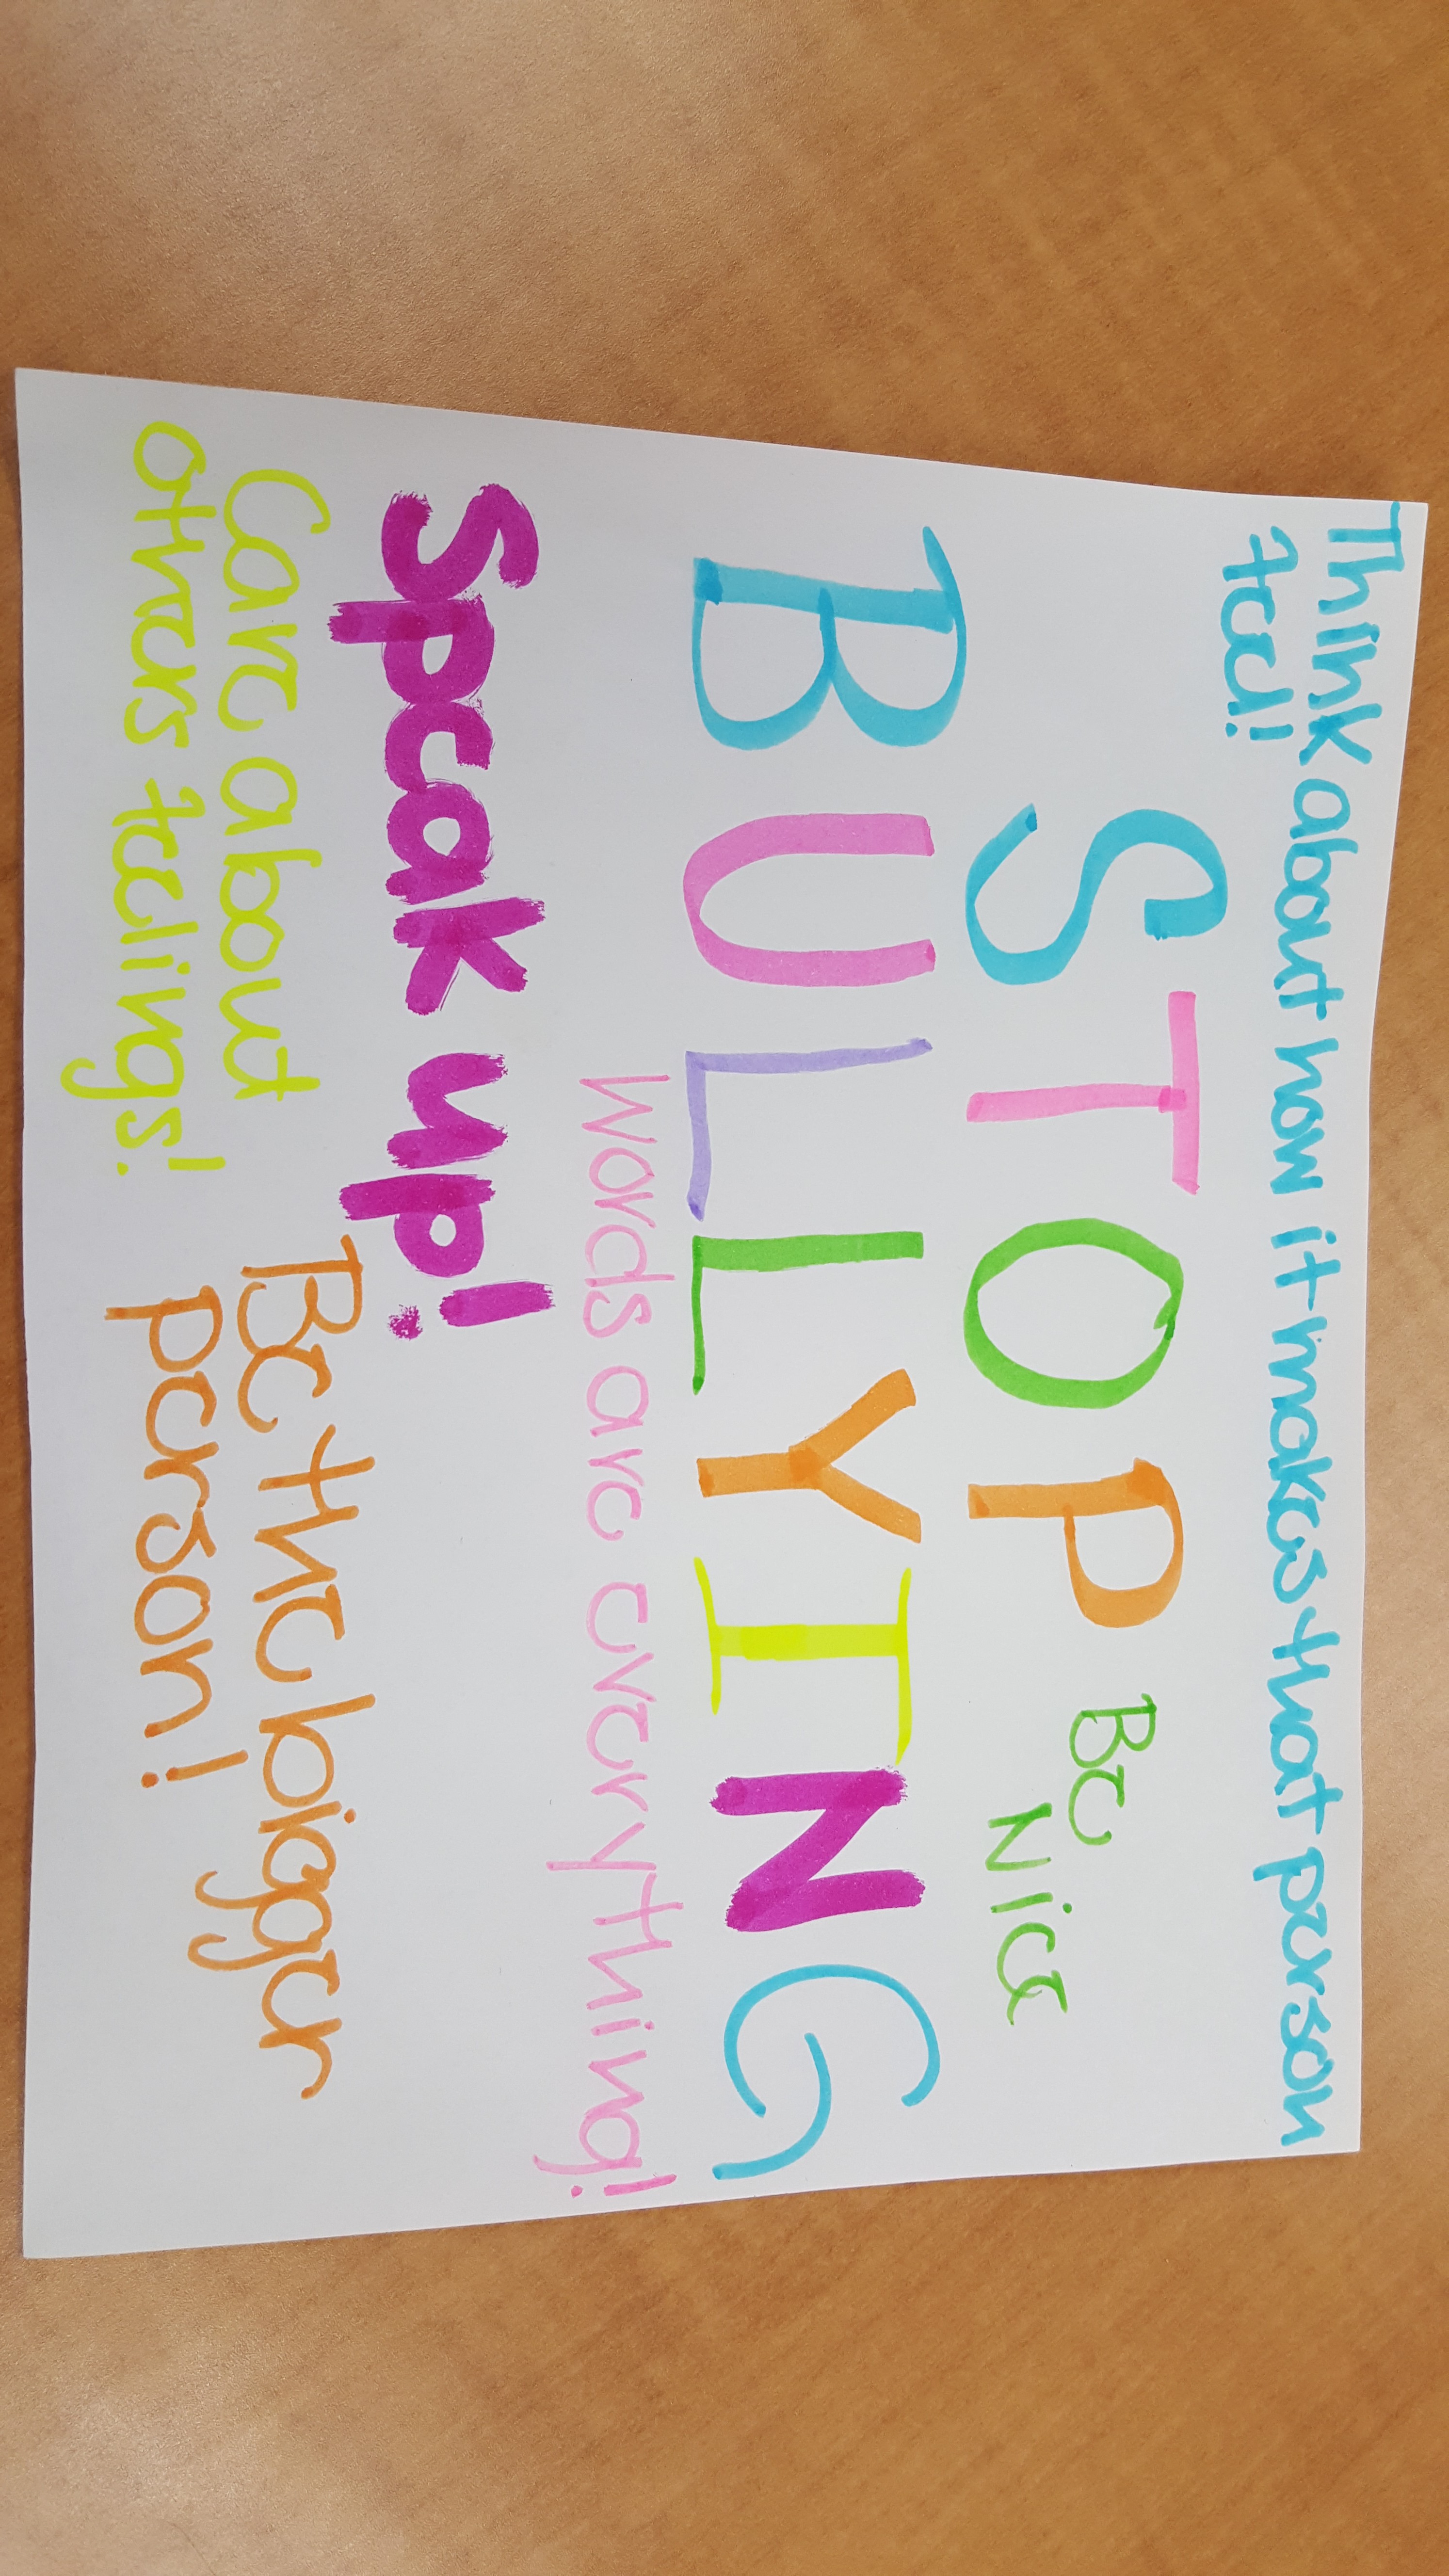 Think about how it makes that person
feel!
STOP
Be
Nice
BULLYING
Words are everything!
Speak up!
Care about
others feelings!
Be the bigger
person!